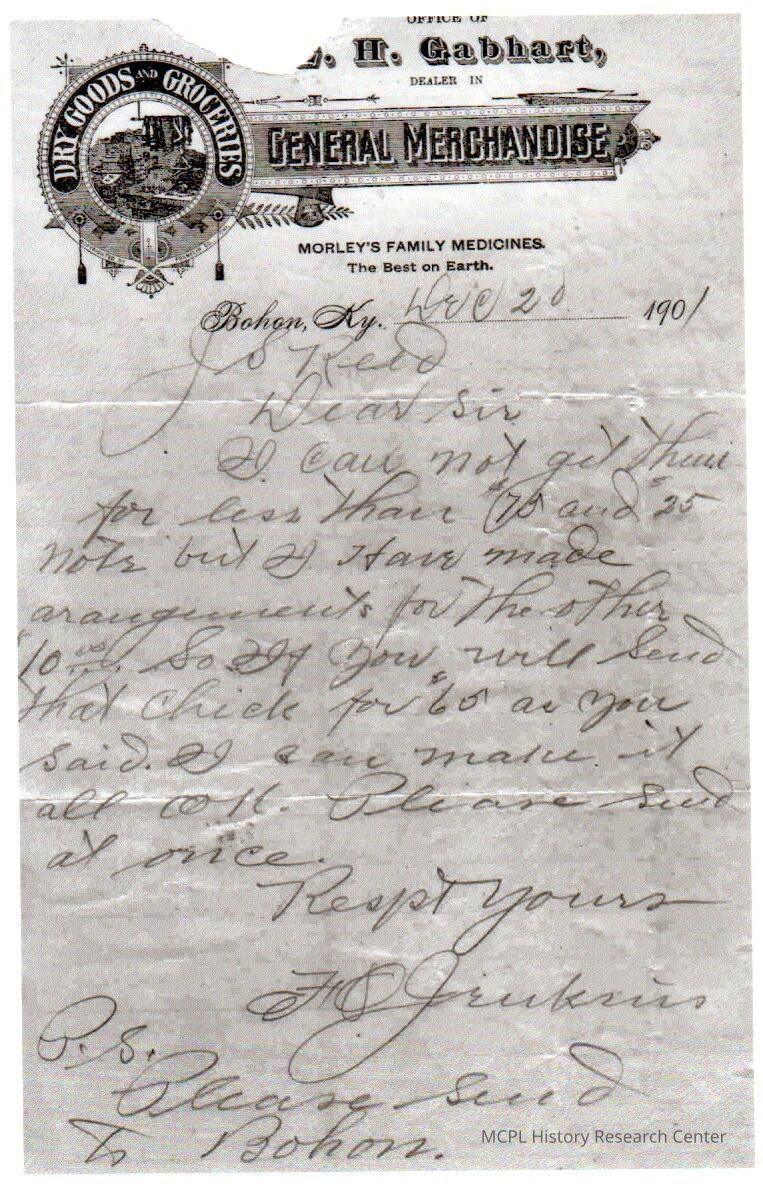 OFFICE OF
. H. Gabhart,
DEALER IN
DRY GOODS AND GROCERIES
GENERAL MERCHANDISE
MORLEY'S FAMILY MEDICINES.
The Best on Earth.
Bohon, Ky. Dec 20 1901
J S Reed
Dear Sir
I can not get them
for less than $75 and $25
note but I Have made
arangements for the other
$10 00 So If you will send
that Check for $65 as you
said. I can make it
all OK. Please send
at once.
Respt Yours
Jenkins
P.S.
Please send
To Bohon.
MCPL History Research Center